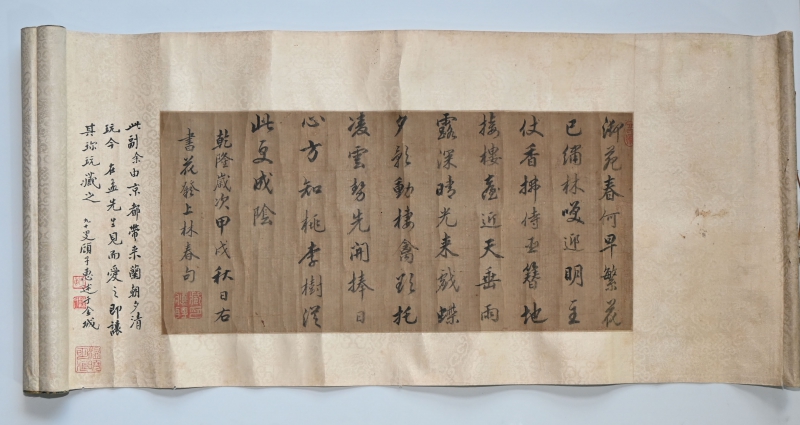 御苑春何早繁花
已繡林咲迎明主
仗香拂侍臣簪地
接樓臺近天垂雨
露深晴光來戲蝶
夕影動棲禽欲托
凌雲勢先開捧日
心方知桃李樹從
此更成陰
乾隆歲次甲戌秋日右
書花發上林春句
此副余由京都帶來蘭朝夕清
玩今在孟先生見而愛之即讓
其珍玩藏之
九十叟于金城